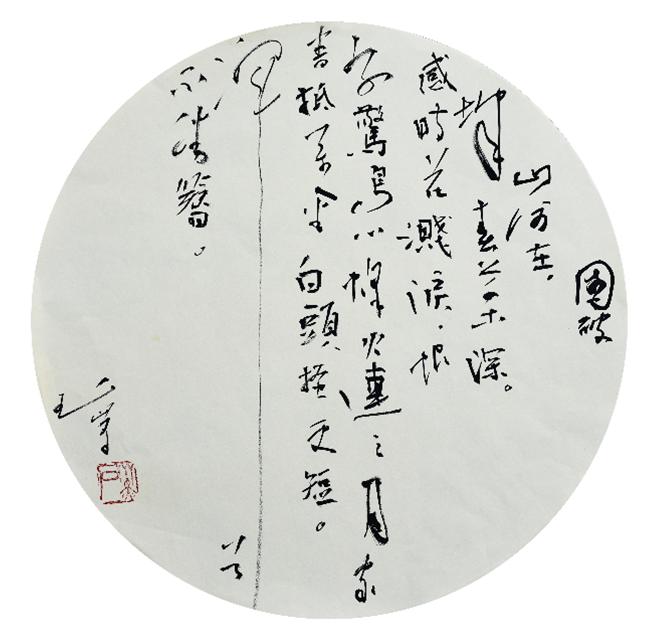 國破
山河在，
城春草木深。
感時花濺淚，恨
別驚鳥心烽火連三月家
書抵萬金白頭搔更短。
渾欲
不勝簪。